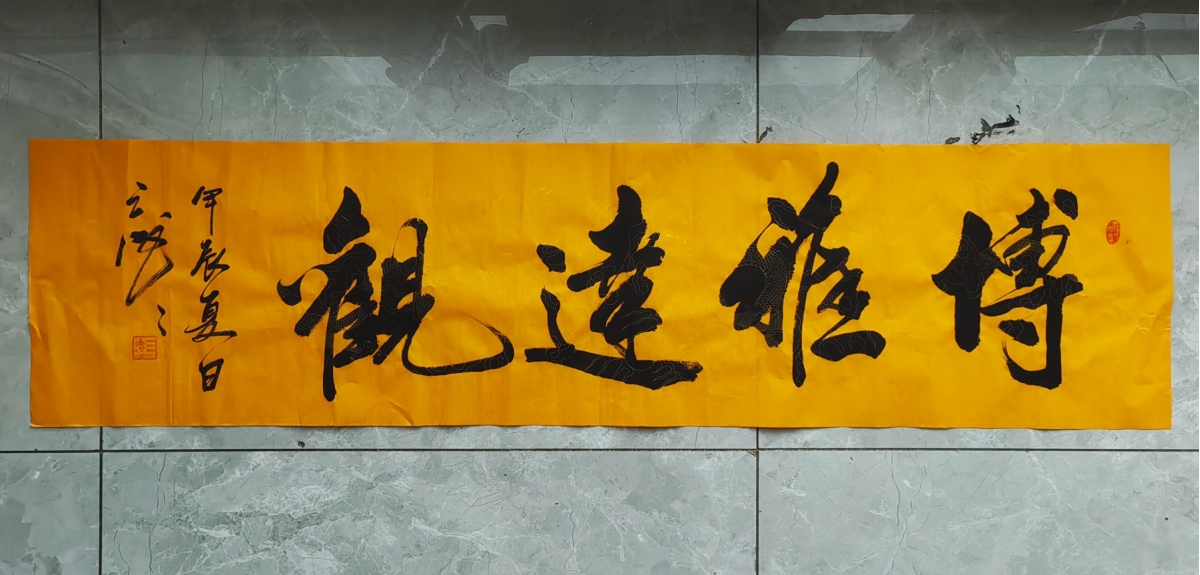 博雅達觀
甲辰夏日